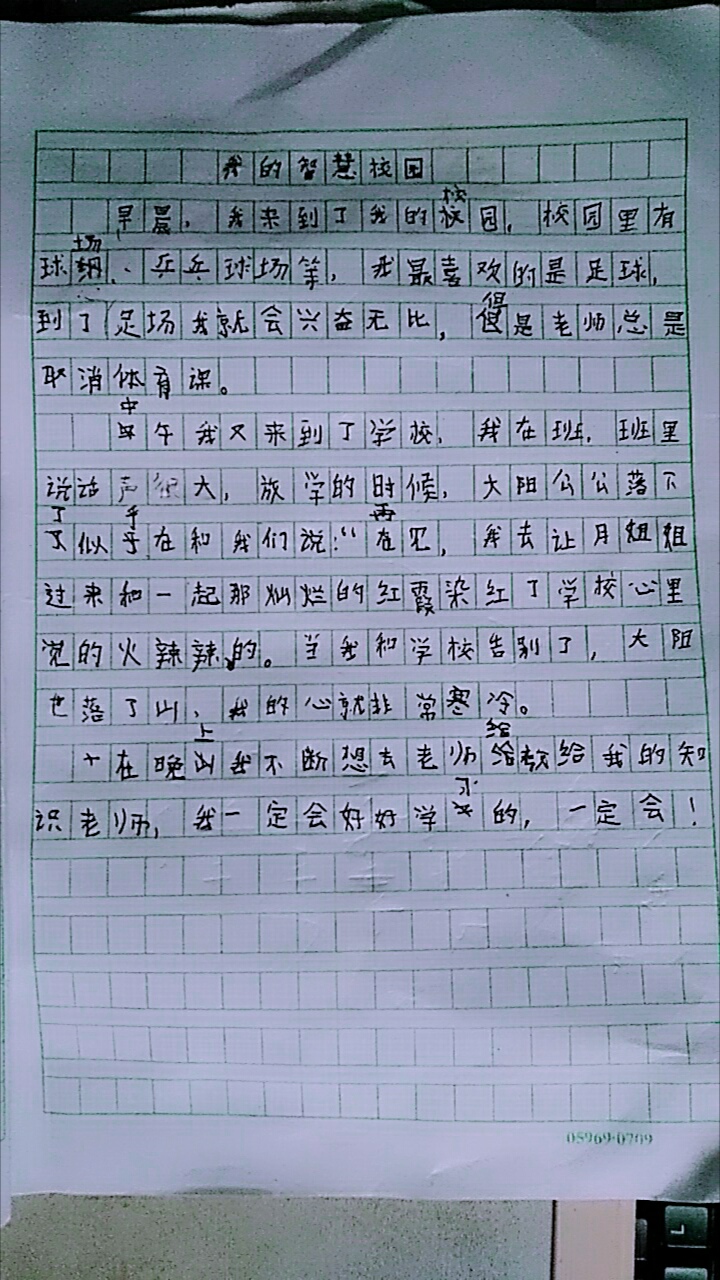 我的智慧校园
早晨，我来到了我的校园，校园里有
球场、乒乓球场等，我最喜欢的是足球，
到了足场我就会兴奋无比，但是老师总是
取消体育课。
中午我又来到了学校，我在班，班里
说话声很大，放学的时候，大阳公公落下
了似乎在和我们说：“再见，我去让月姐姐
过来和一起那灿烂的红霞染红了学校心里
觉的火辣辣的。当我和学校告别了，大阳
也落了山，我的心就非常寒冷。
在晚上我不断想去老师给教给我的知
识老师，我一定会好好学习的，一定会！
05969-0709